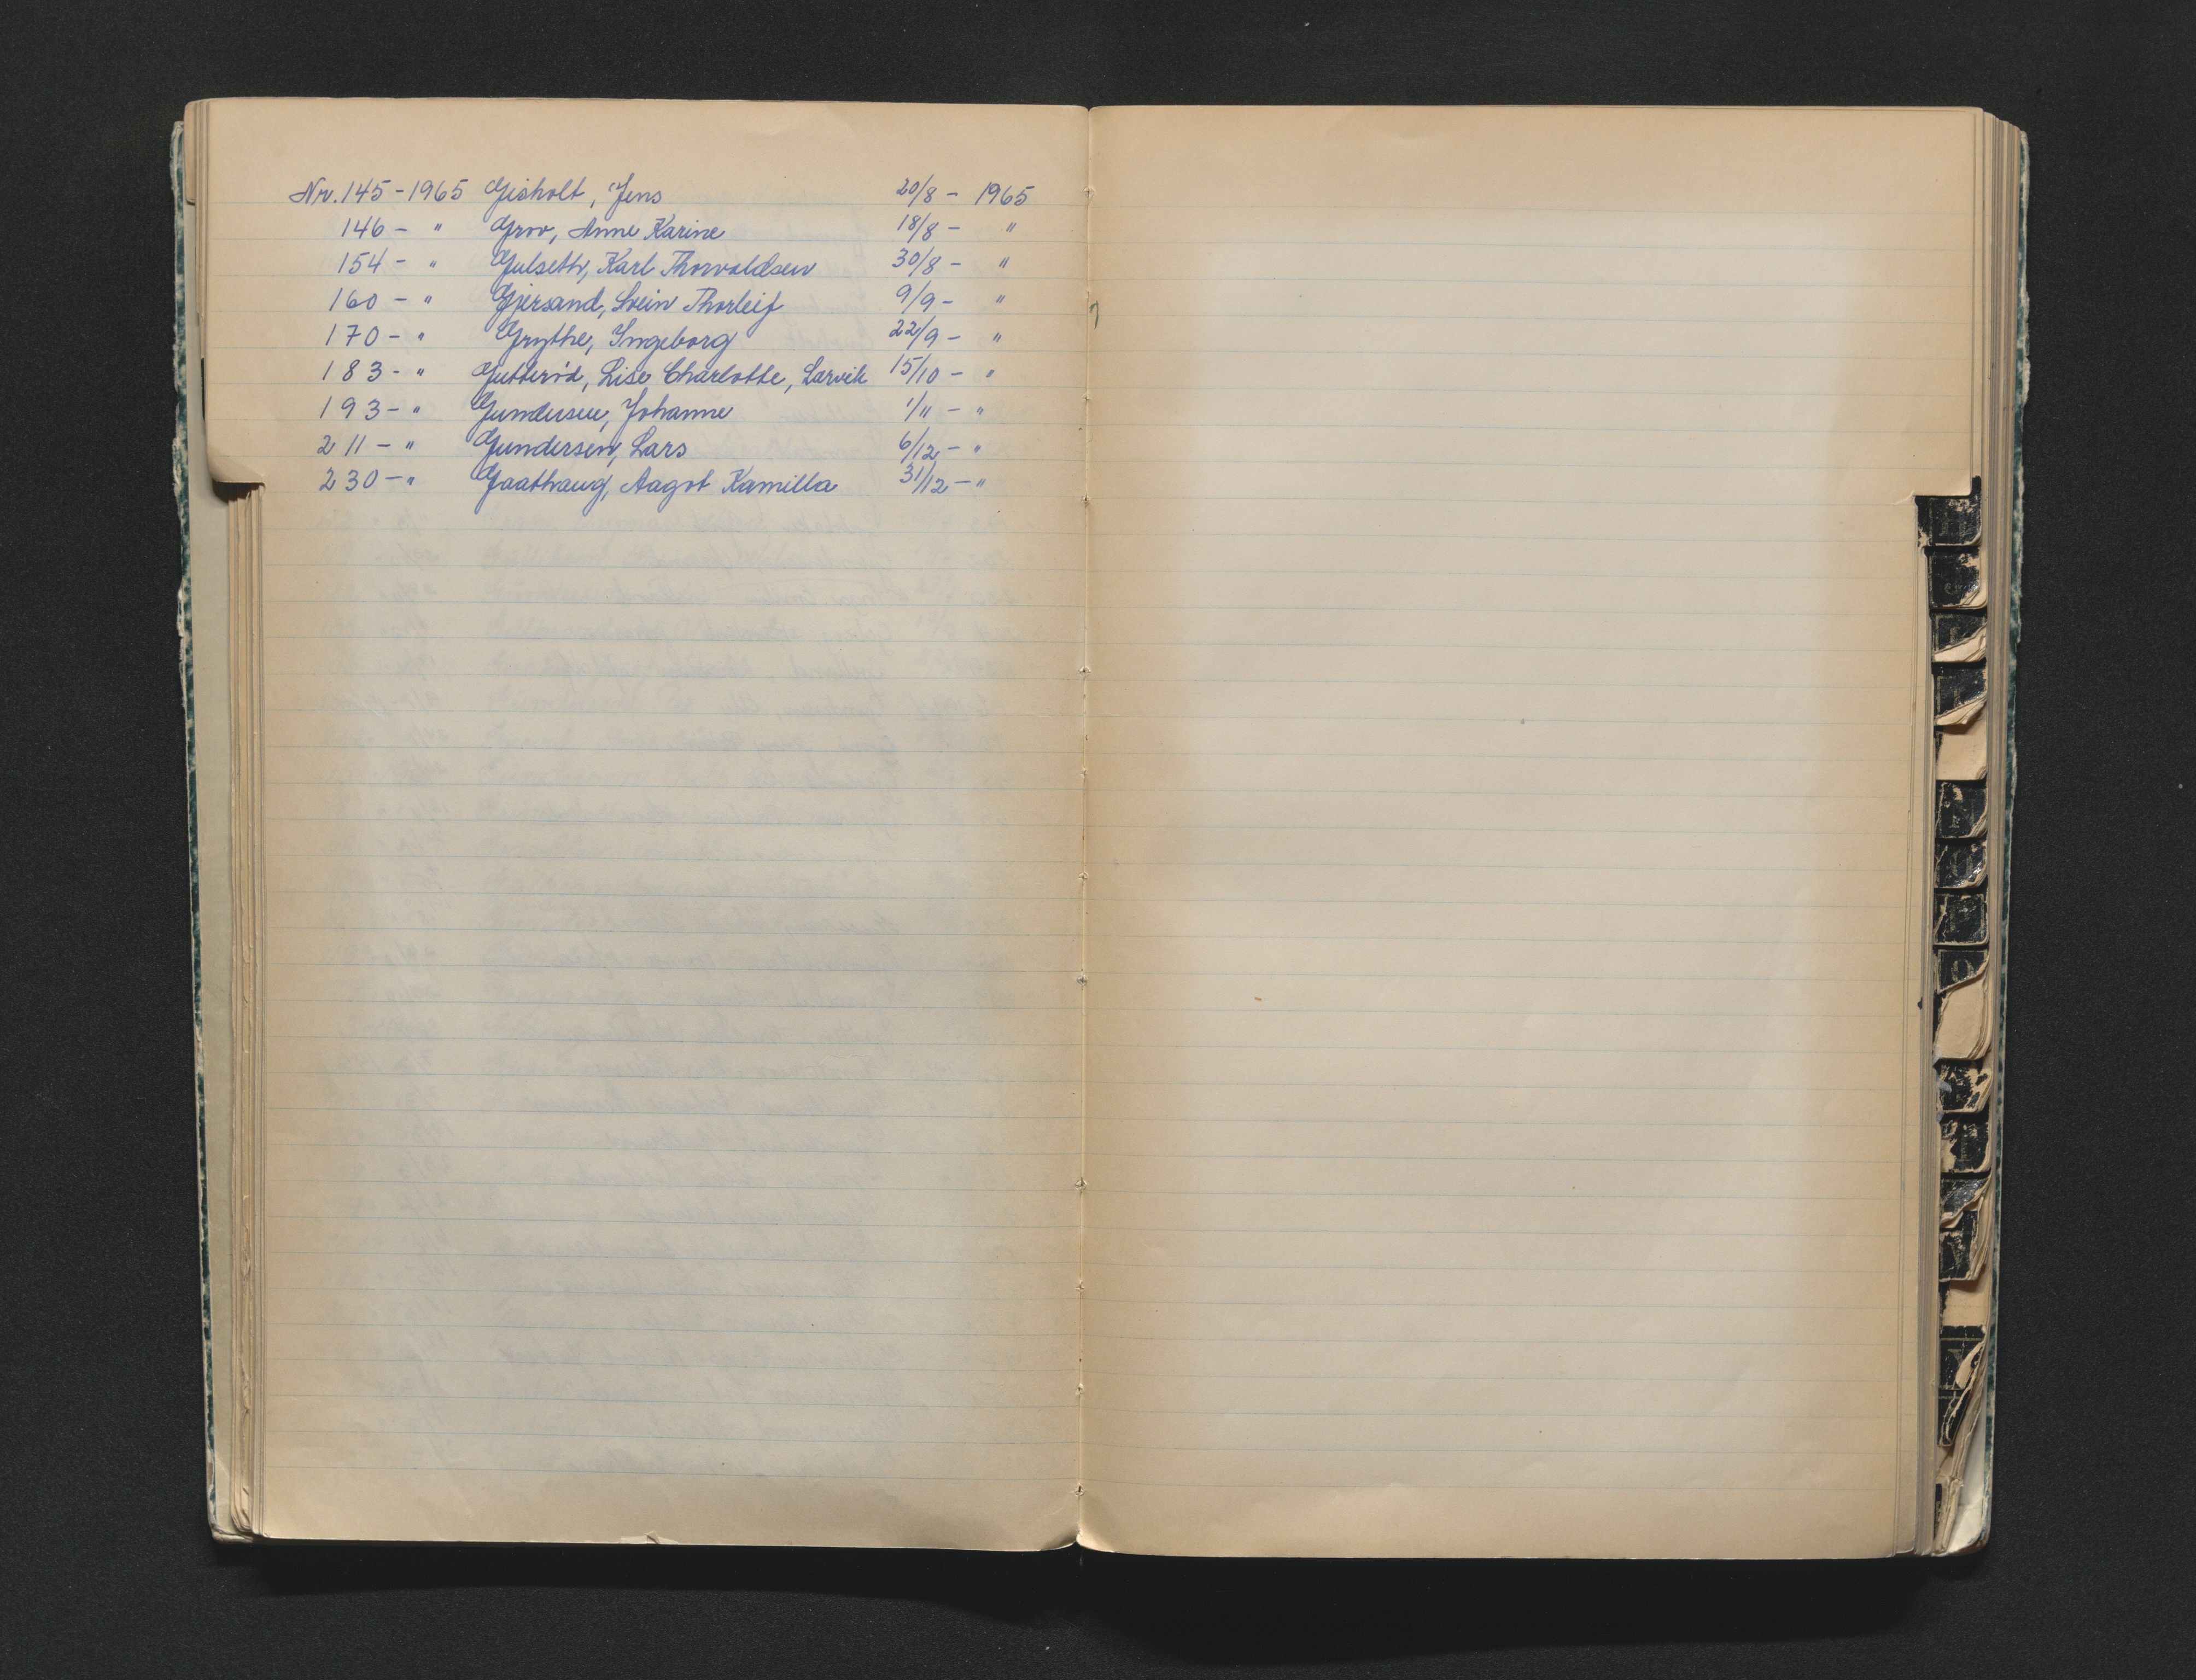 Nr. 145 - 1965 Gisholt, Jens 20/8 - 1965
146 - " Grov, Anne Karine 18/8 - "
154 - " Gulseth, Karl Thorvaldsen 30/8 - "
160 - " Gjersand, Svein Thorleif 9/9 - "
170 - " Grythe, Ingeborg 22/9 - "
183 - " Gutterød, Lise Charlotte, Larvik 15/10 - "
193 - " Gundersen, Johanne 1/11 - "
211 - " Gundersen, Lars 6/12 - "
230 - " Gaathaug, Aagot Kamilla 31/12 - "